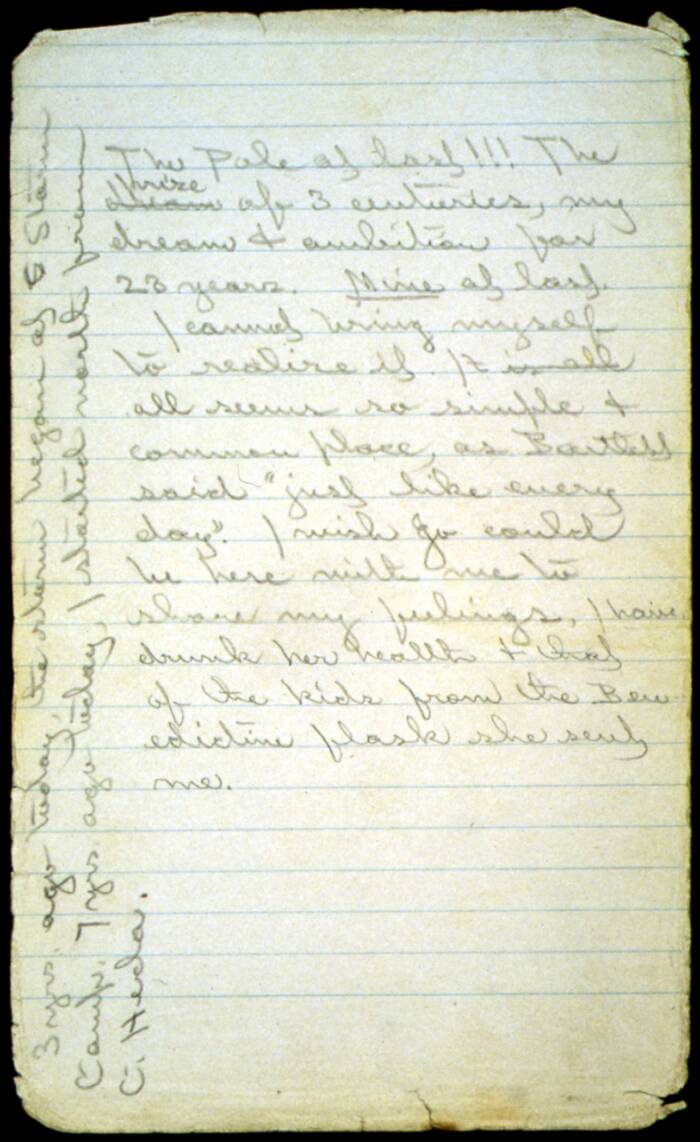 The Pole at last!!! The
prize
dream of 3 centuries, my
dream & ambition for
23 years. Mine at last.
I cannot bring myself
to realize it. It is all
all seems so simple &
common place, as Bartlett
said "just like every
day". I wish Jo could
be here with me to
share my feelings. I have
drunk her health & that
of the kids from the Ben-
edictine flask she sent
me.
3 yrs. ago today, the storm began at 6 Storm
Camp. 7 yrs. ago today, I started north from
C. Hecla.